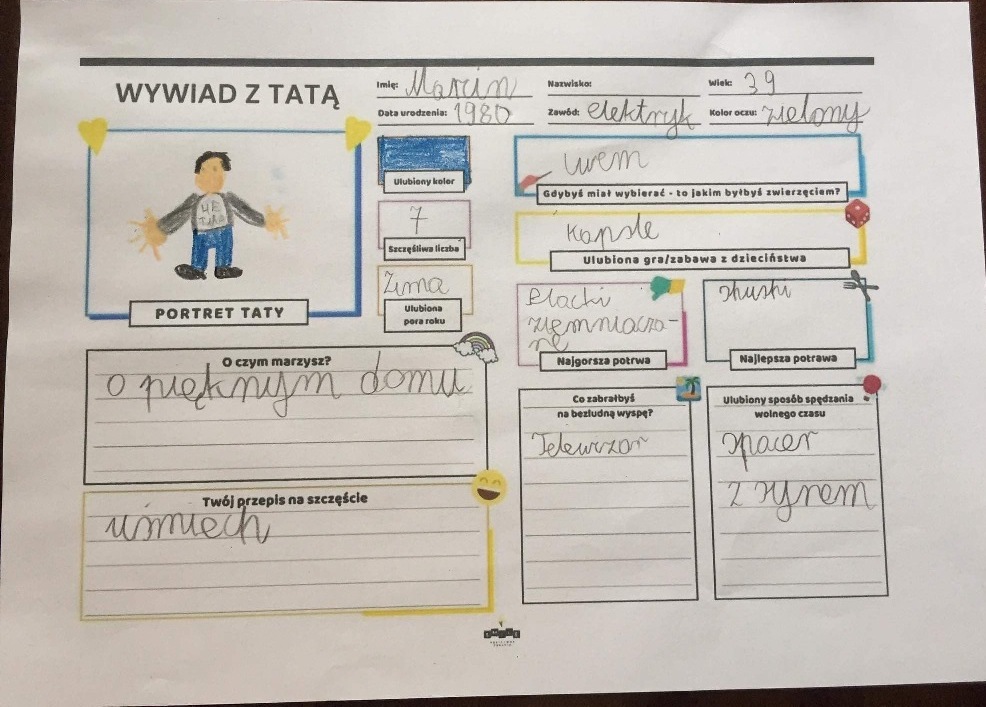 WYWIAD Z TATĄ
Imię: Marcin
Nazwisko:
Wiek: 39
Data urodzenia: 1980
Zawód: elektryk
Kolor oczu: zielony
PORTRET TATY
Ulubiony kolor
7
Szczęśliwa liczba
Zima
Ulubiona
pora roku
lwem
Gdybyś miał wybierać - to jakim byłbyś zwierzęciem?
Kapsle
Ulubiona gra/zabawa z dzieciństwa
Placki
ziemniacza-
ne
Najgorsza potrwa
Najlepsza potrawa
O czym marzysz?
o pięknym domu
Twój przepis na szczęście
uśmiech
Co zabrałbyś
na bezludną wyspę?
Telewizor
Ulubiony sposób spędzania
wolnego czasu
spacer
z synem